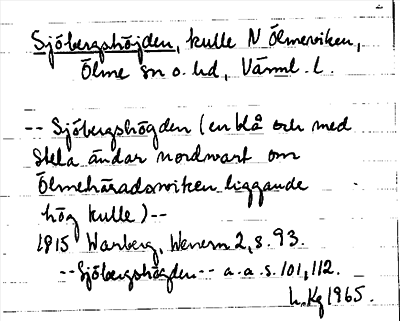 Sjöbergshöjden, kulle N Ölmeviken,
Ölme sn o. hd, Värml. l.
-- Sjöbergshögden (en blå och med
stela ändar nordwart om
Ölmehäradswiken liggande
hög kulle) --
1815 Warberg, Wenern 2, s. 93.
-- Sjöbergshögden -- a. a. s. 101, 112.
L. Kg 1965.